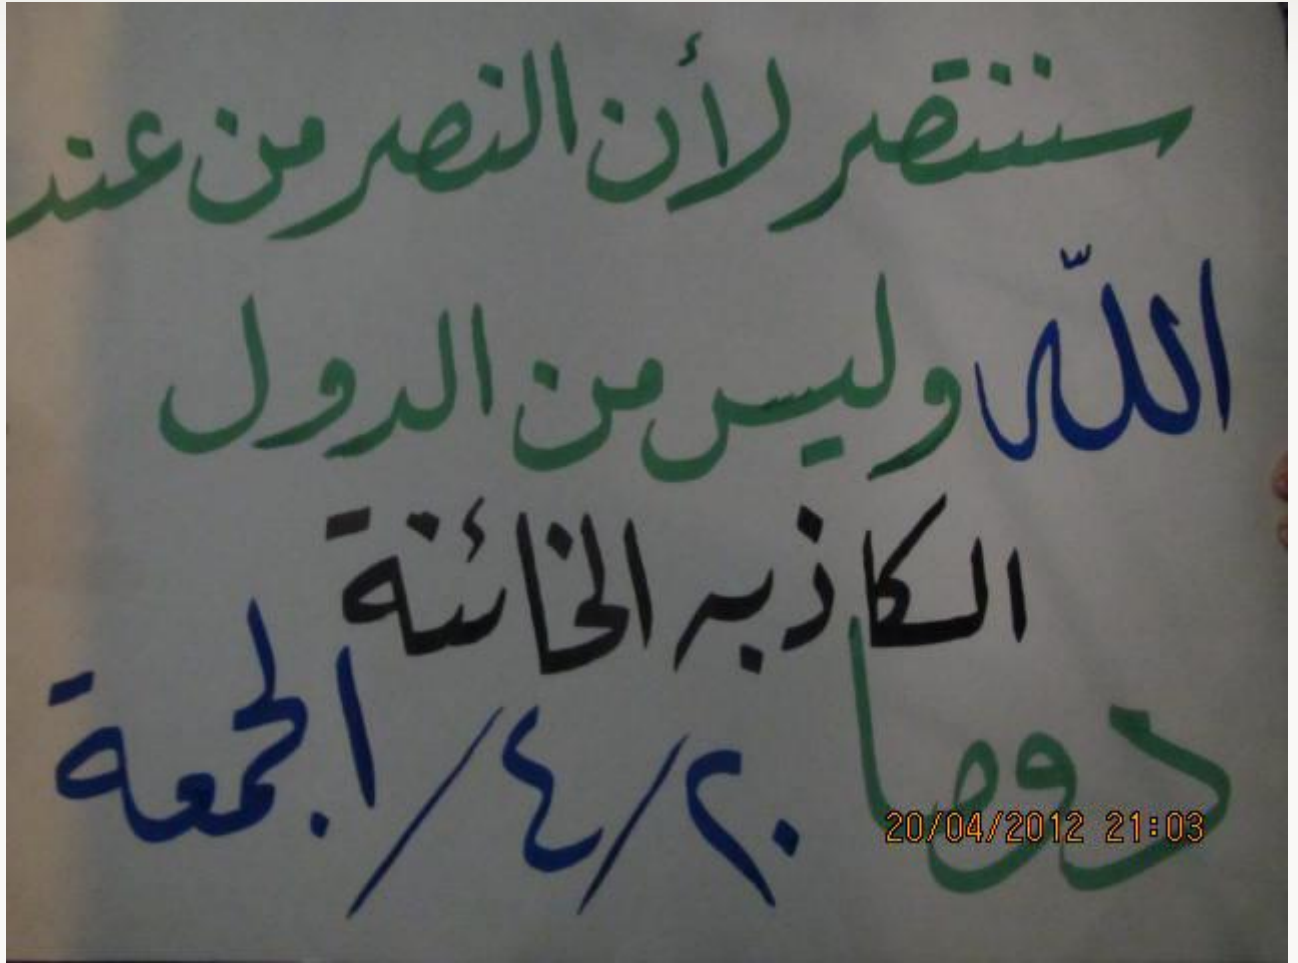 سننتصر لأن النصر من عند
اللّه وليس من الدول
الكاذبه الخائنة
دوما ٢٠/٤/ الجمعة
20/04/2012 21:03